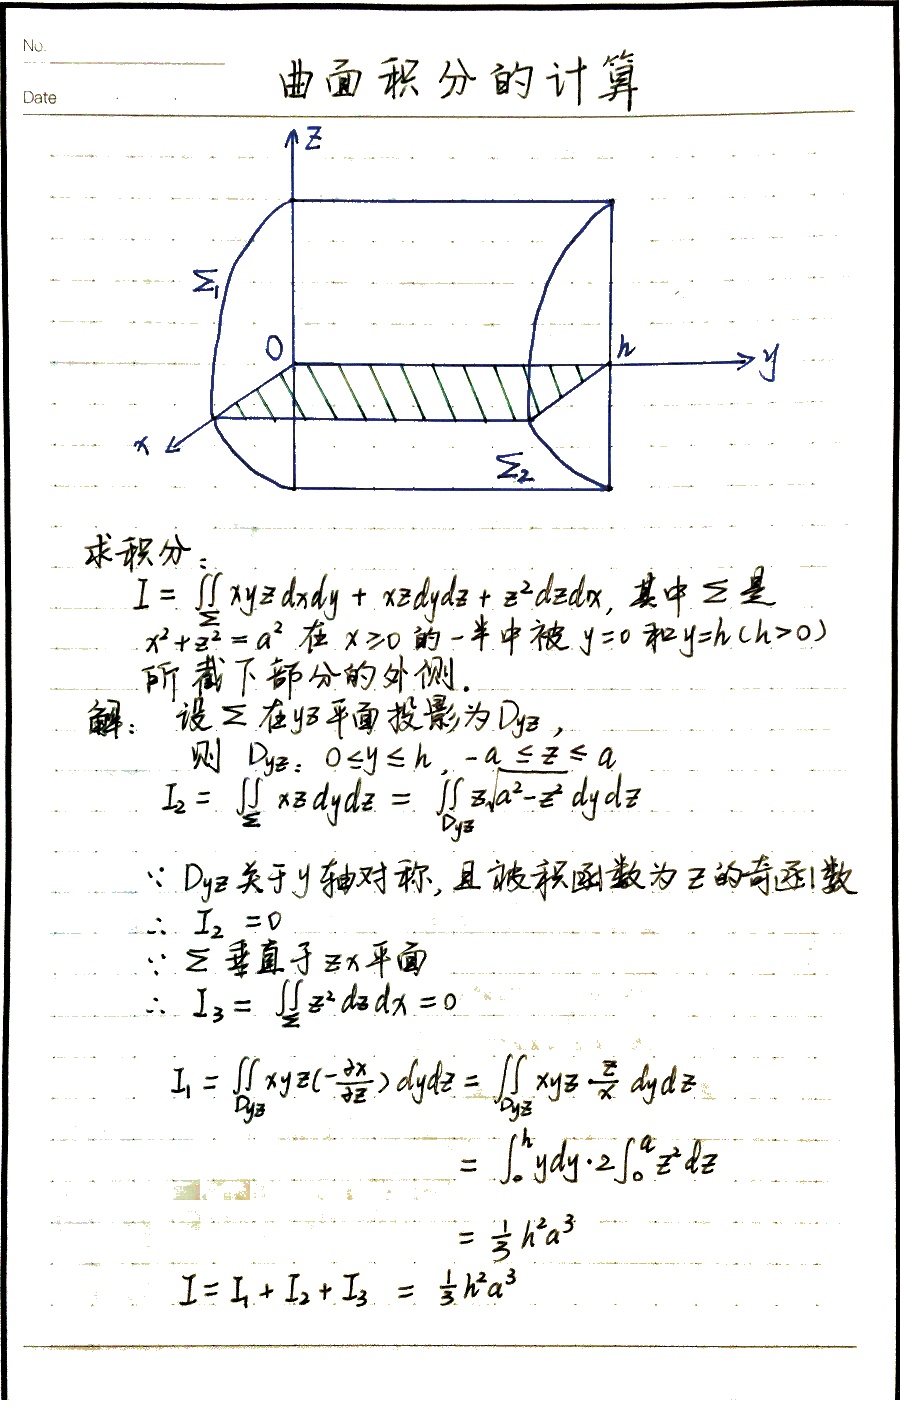 No.
Date
曲面积分的计算
z
Σ₁
O
h
y
x
Σ₂
求积分:
I = ∬_Σ xyzdxdy + xzdydz + z²dzdx, 其中Σ是
x²+z²=a² 在 x≥0 的一半中被 y=0 和 y=h(h>0)
所截下部分的外侧.
解: 设Σ在yz平面投影为D_yz,
则 D_yz: 0≤y≤h, -a≤z≤a
I₂ = ∬_Σ xzdydz = ∬_{D_yz} z√(a²-z²) dydz
∵ D_yz关于y轴对称,且被积函数为z的奇函数
∴ I₂ = 0
∵ Σ垂直于zx平面
∴ I₃ = ∬_Σ z²dzdx = 0
I₁ = ∬_{D_yz} xyz(-∂x/∂z)dydz = ∬_{D_yz} xyz·z/x dydz
= ∫₀ʰ ydy·2∫₀ᵃ z²dz
= 1/3 h²a³
I = I₁ + I₂ + I₃ = 1/3 h²a³